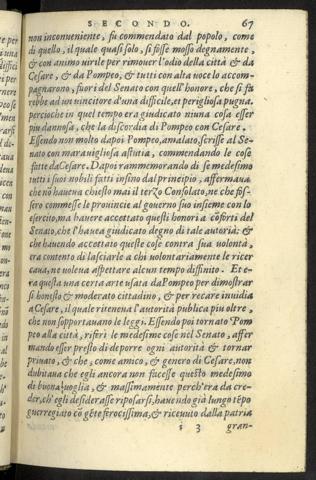 SECONDO. 67
non inconveniente, fu commendato dal popolo, come
di quello, il quale quasi solo, si fosse mosso degnamente,
& con animo virile per rimouer l'odio della città & da
Cesare, & da Pompeo, & tutti con alta uoce lo accom-
pagnarono, fuori del Senato con quell'honore, che si fa
rebbe ad un uincitore d'una difficile, et perigliosa pugna.
percioche in quel tempo era giudicato niuna cosa esser
piu dannosa, che la discordia di Pompeo con Cesare.
Essendo non molto dapoi Pompeo, amalato, scrisse al Se-
nato con marauigliosa astutia, commendando le cose
fatte da Cesare. Dapoi rammemorando di se medesimo
tutti i suoi nobili fatti insino dal principio, affermaua
che nō haueua chiesto mai il terzo Consolato, ne che fos-
sero commesse le prouincie al gouerno suo insieme con lo
esercito, ma hauere accettato questi honori a cōforti del
Senato, che l'haueа giudicato degno di tale autorià: &
che hauendo accettato queste cose contra sua uolontà,
era contento di lasciarle a chi uolontariamente le ricer
caua, ne uoleua aspettare alcun tempo diffinito. Et e-
ra questa una certa arte usata da Pompeo per dimostrar
si honesto & moderato cittadino, & per recare inuidia
a Cesare, il quale riteneua l'autorità publica piu oltre,
che non sopportauano le leggi. Essendo poi tornato Pom
peo alla città, riferì le medesime cose nel Senato, affer
mando esser presto di deporre ogni autorità & tornar
priuato, & che, come amico, & genero di Cesare, non
dubitaua che egli ancora non facesse questo medesimo
di buona uoglia, & massimamente perch'era da cre-
der, ch'egli desiderasse riposarsi, hauendo già lungo tēpo
guerregiato cō gēte ferocissima, & riceuuto dalla patria
i 3 gran-